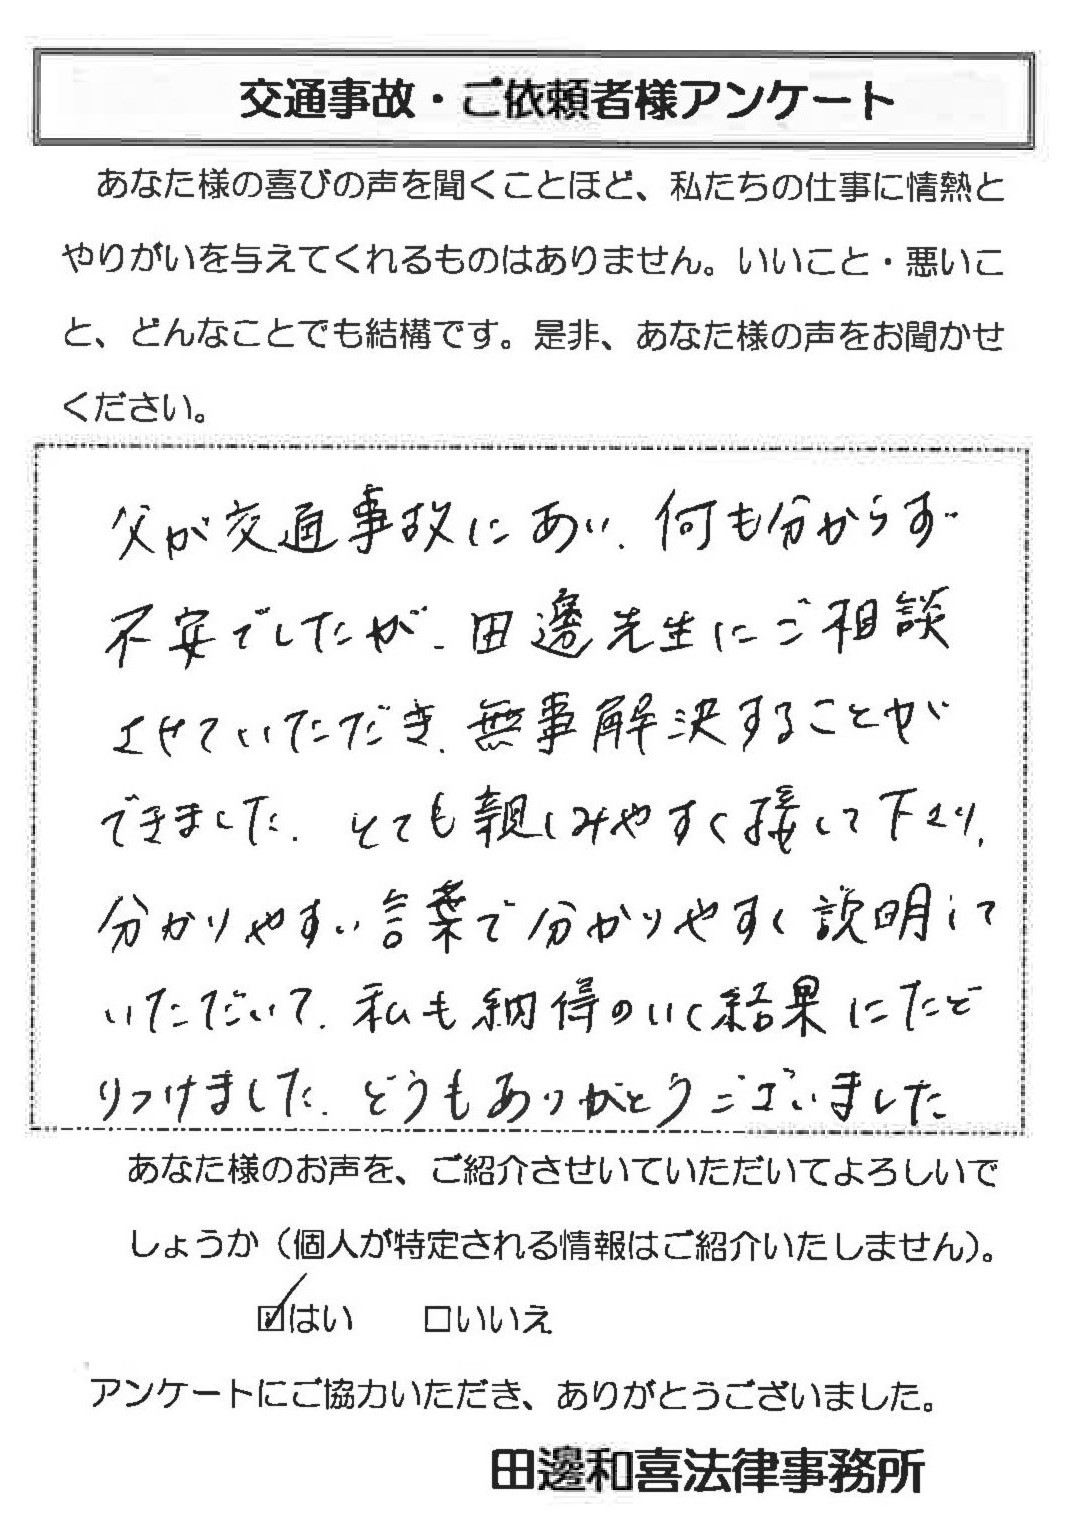 交通事故・ご依頼者様アンケート
あなた様の喜びの声を聞くことほど、私たちの仕事に情熱と
やりがいを与えてくれるものはありません。いいこと・悪いこ
と、どんなことでも結構です。是非、あなた様の声をお聞かせ
ください。
父が交通事故にあい、何も分からず
不安でしたが、田邊先生にご相談
させていただき、無事解決することが
できました。とても親しみやすく接して下さり、
分かりやすい言葉で分かりやすく説明して
いただいて、私も納得のいく結果にたど
りつけました。どうもありがとうございました
あなた様のお声を、ご紹介させいていただいてよろしいで
しょうか（個人が特定される情報はご紹介いたしません）。
☑はい　□いいえ
アンケートにご協力いただき、ありがとうございました。
田邊和喜法律事務所